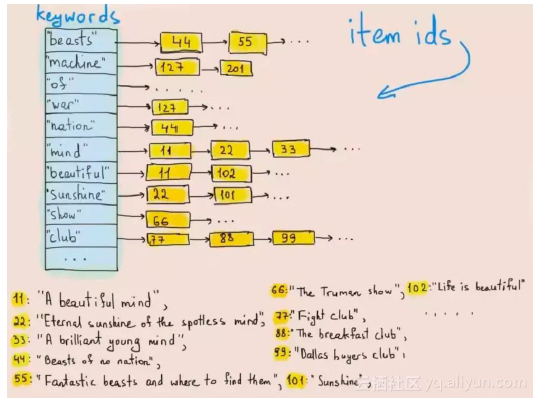 keywords
item ids
"beasts" 44 55 ...
"machine" 127 201
"of" ......
"war" 127 ...
"nation" 44 ...
"mind" 11 22 33 ...
"beautiful" 11 102 ...
"sunshine" 22 101 ...
"show" 66 ...
"club" 77 88 99 ...
...
11: "A beautiful mind",
22: "Eternal sunshine of the spotless mind",
33: "A brilliant young mind",
44: "Beasts of no nation",
55: "Fantastic beasts and where to find them", 101: "Sunshine",
66: "The Truman show", 102: "Life is beautiful"
77: "Fight club", .....
88: "The breakfast club",
99: "Dallas buyers club",
云栖社区 yq.aliyun.com